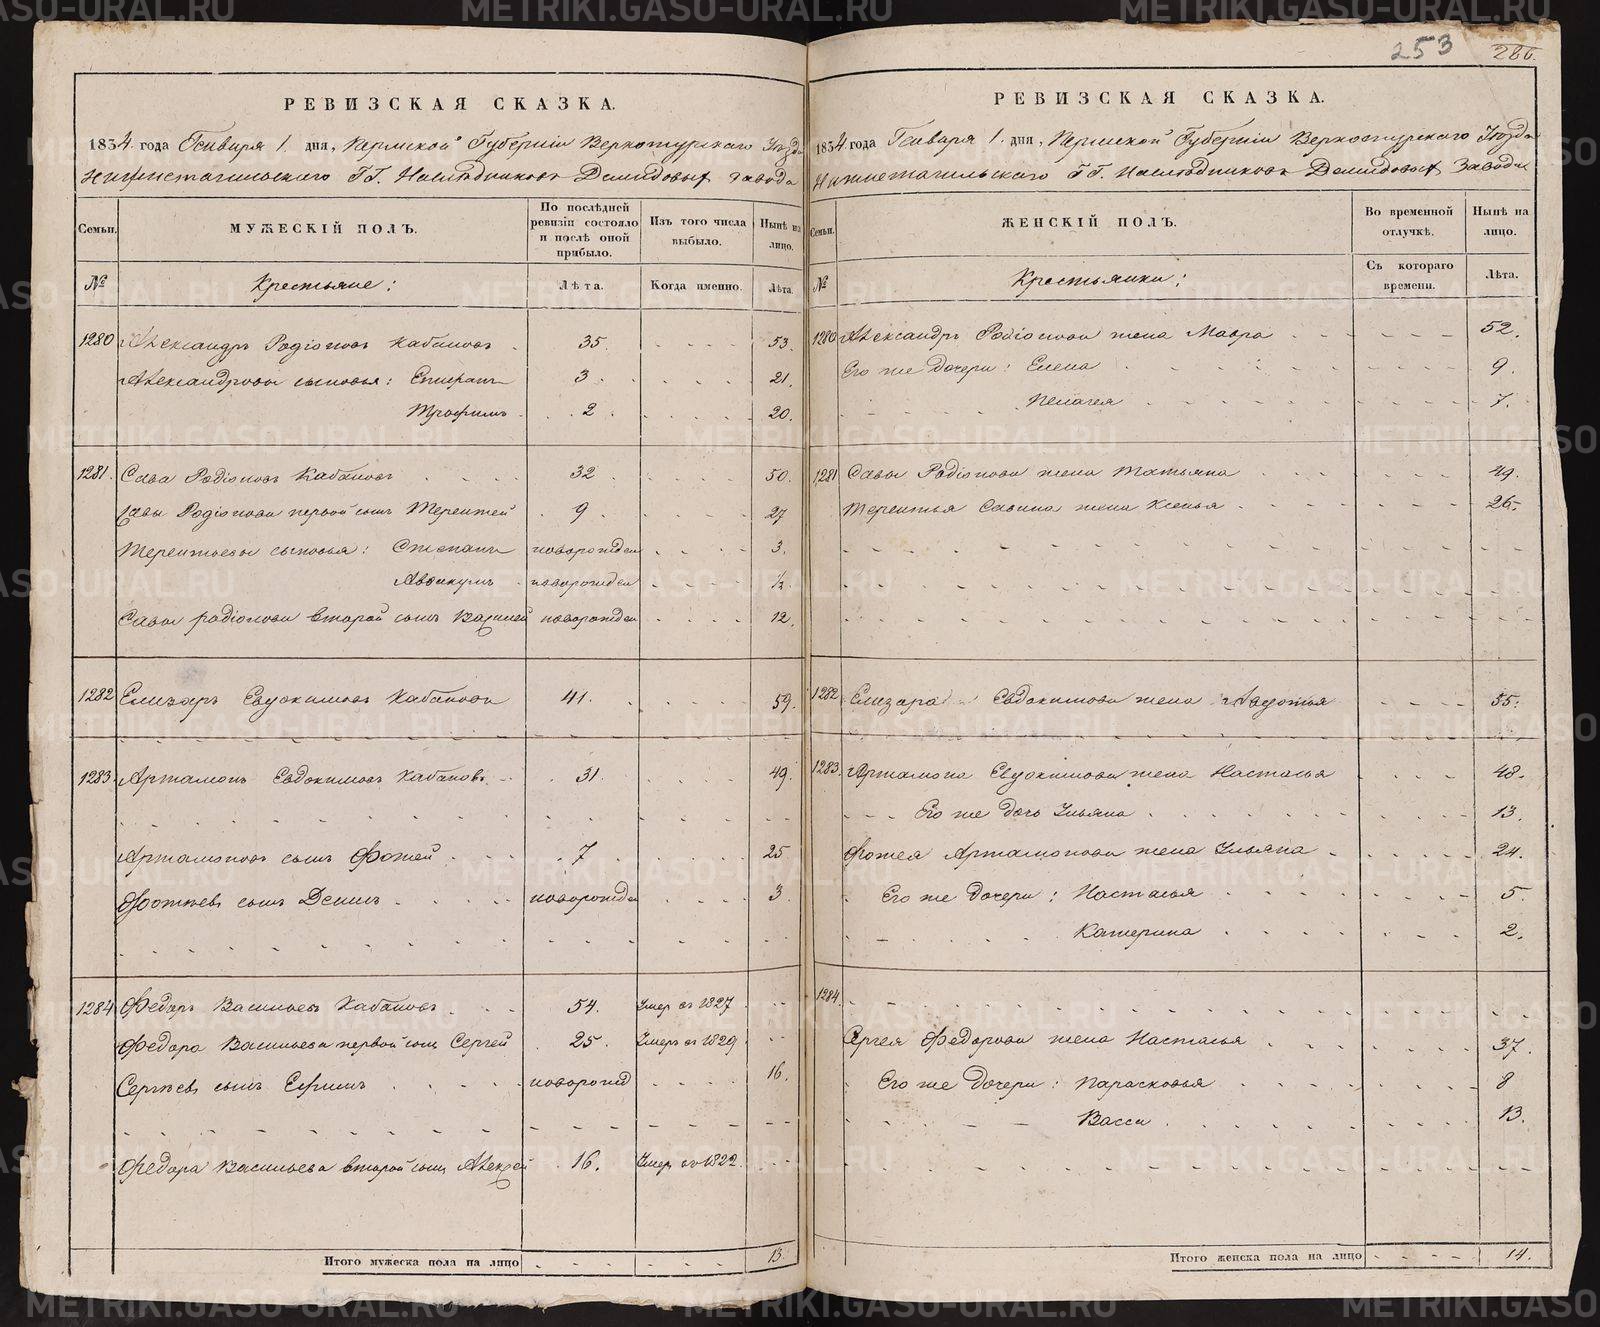 253
286.
РЕВИЗСКАЯ СКАЗКА.
1834 года Генваря 1 дня, Пермской Губерніи Верхотурскаго Уѣзда
Нижнетагильскаго ГГ. Наслѣдниковъ Демидовыхъ завода
Семьи.
МУЖЕСКІЙ ПОЛЪ.
По послѣдней ревизіи состояло и послѣ оной прибыло.
Изъ того числа выбыло.
Нынѣ на лицо.
№
Крестьяне:
Лѣта.
Когда именно.
Лѣта.
1280 Александръ Родіоновъ Кабановъ 35. 53.
Александровы сыновья: Спиранъ 3 21.
Трофимъ 2 20.
1281. Сава Родіоновъ Кабановъ 32 50.
Савы Родіонова первой сынъ Терентей 9 27
Терентьевы сыновья: Степанъ новорожден 3.
Аввакумъ новорожден ½
Савы Родіонова второй сынъ Василей новорожден 12.
1282 Елизаръ Евдокимовъ Кабановъ 41. 59.
1283 Артамонъ Евдокимовъ Кабановъ 31. 49.
Артамоновъ сынъ Фотей 7 25
Фотѣевъ сынъ Демидъ новорожден 3.
1284 Федоръ Васильевъ Кабановъ 54. Умер въ 1827
Федора Васильева первой сынъ Сергей 25. Умеръ въ 1829
Сергѣевъ сынъ Ефимъ новорожд 16.
Федора Васильева второй сынъ Алексей 16. Умер въ 1822
Итого мужеска пола на лицо 13
РЕВИЗСКАЯ СКАЗКА.
1834 года Генваря 1. дня, Пермской Губерніи Верхотурскаго Уѣзда
Нижнетагильскаго ГГ. Наслѣдниковъ Демидовыхъ Завода
Семьи.
ЖЕНСКІЙ ПОЛЪ.
Во временной отлучкѣ.
Нынѣ на лицо.
№
Крестьянки:
Съ котораго времени.
Лѣта.
1280 Александръ Родіонова жена Мавра 52.
Его же дочери: Елена 9.
Пелагея 7.
1281 Савы Родіонова жена Татьяна 49.
Терентья Савина жена Ксенья 26.
1282 Елизара Евдокимова жена Авдотья 55.
1283. Артамона Евдокимова жена Настасья 48.
Его же дочь Ульяна 13.
Фотея Артамонова жена Ульяна 24.
Его же дочери: Настасья 5.
Катерина 2.
1284.
Сергея Федорова жена Настасья 37.
Его же дочери: Парасковья 8
Васса 13.
Итого женска пола на лицо 14.
METRIKI.GASO-URAL.RU